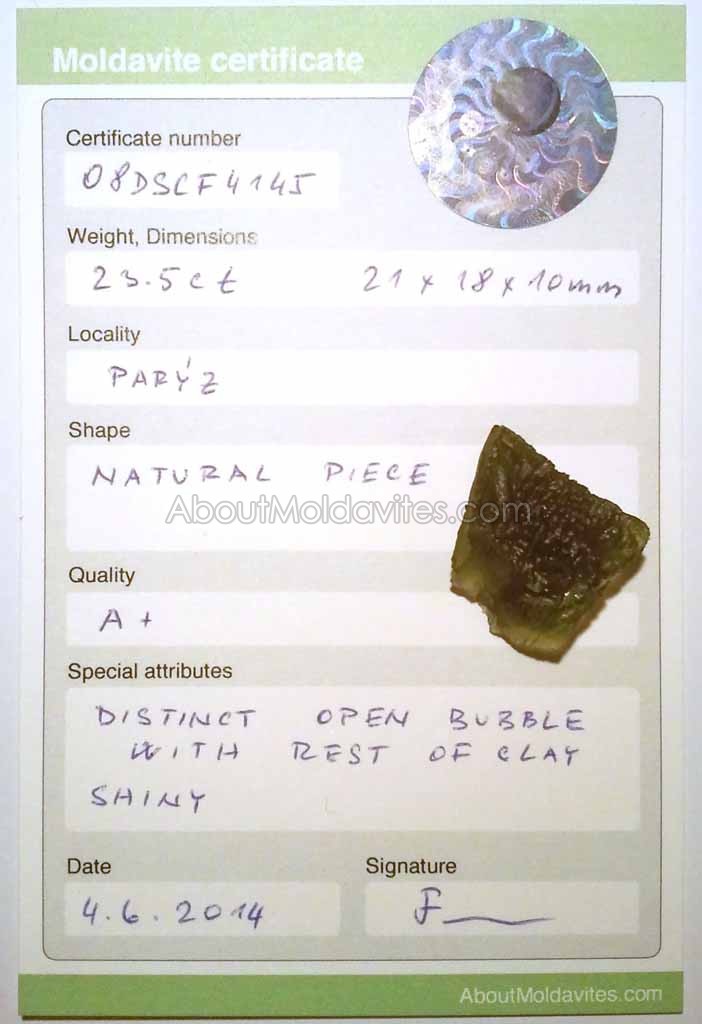 Moldavite certificate
Certificate number
08DSCF4145
Weight, Dimensions
23.5ct 21 x 18 x 10mm
Locality
PARÝZ
Shape
NATURAL PIECE
AboutMoldavites.com
Quality
A+
Special attributes
DISTINCT OPEN BUBBLE
WITH REST OF CLAY
SHINY
Date Signature
4.6.2014
AboutMoldavites.com